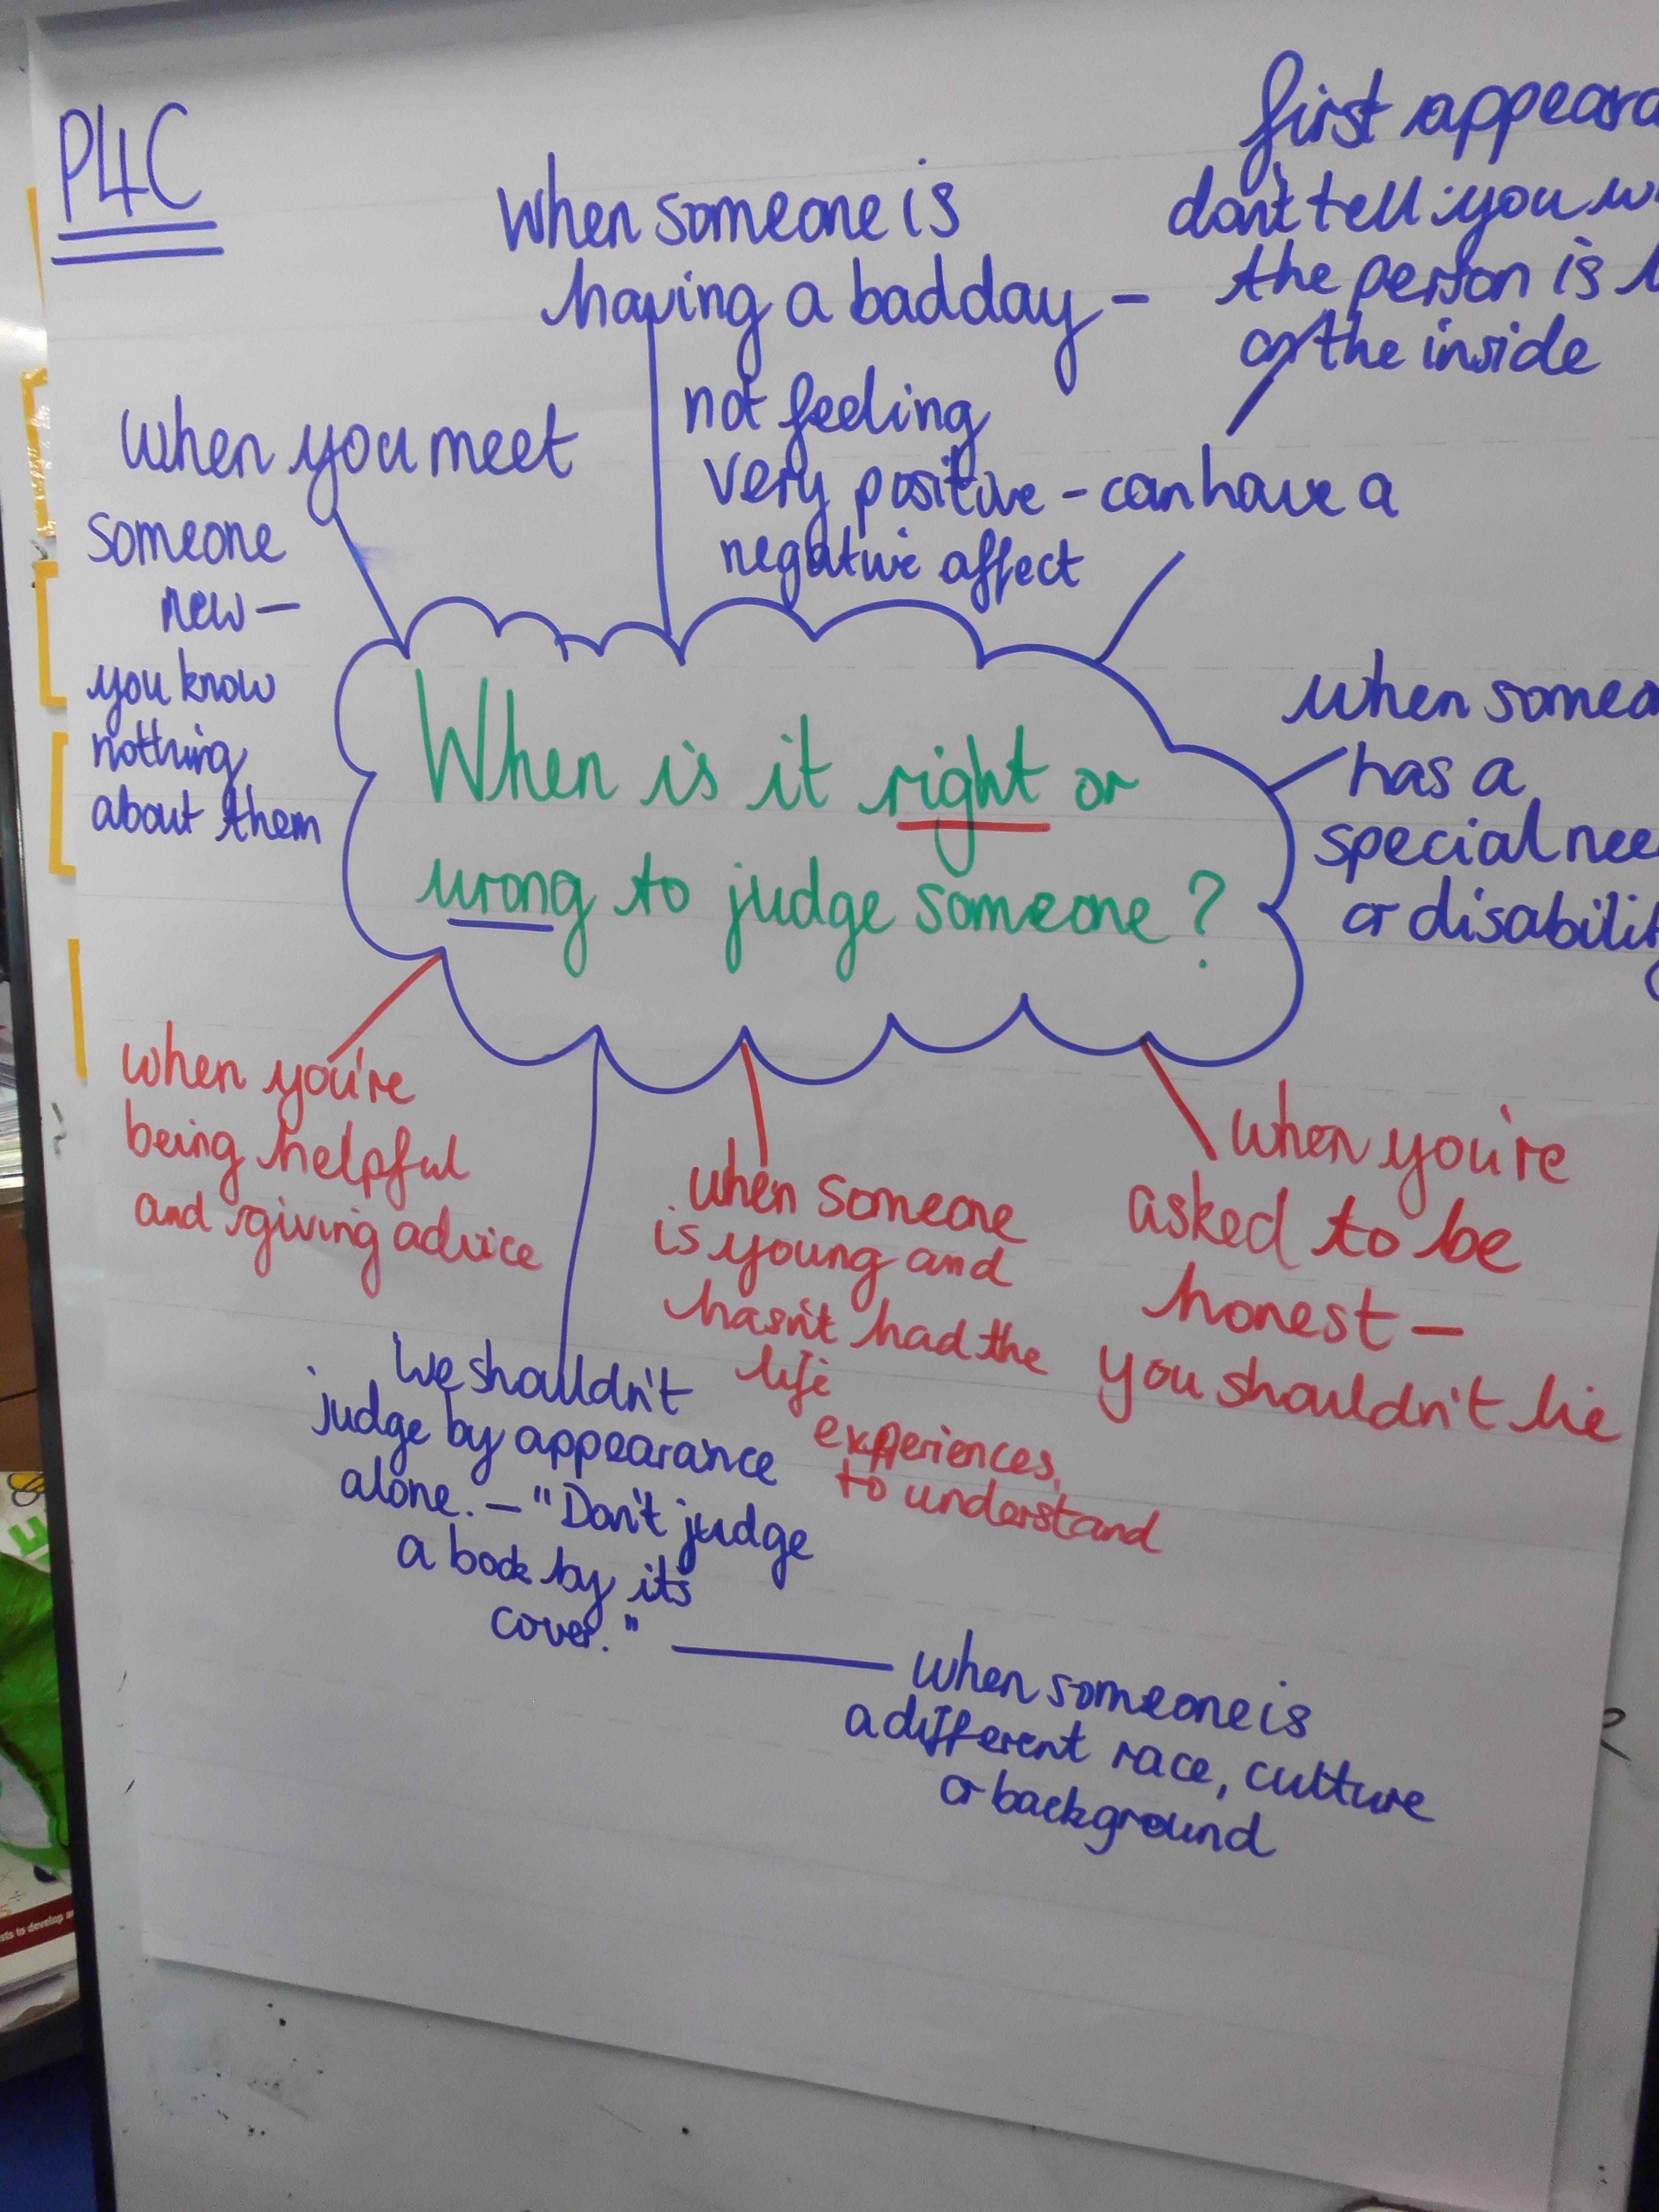 P4C
when someone is
having a bad day -
not feeling
very positive - can have a
negative affect
first
don't tell you
the person is
on the inside
when you meet
someone
new -
you know
nothing
about them
When is it right or
wrong to judge someone?
when
has a
special
or
when you're
being helpful
and giving advice
we shouldn't
judge by appearance
alone. - "Don't judge
a book by it's
cover."
when someone is
a different race, culture
or background
when someone
is young and
hasn't had the
life
experiences,
to understand
when you're
asked to be
honest -
you shouldn't lie
sts to develop